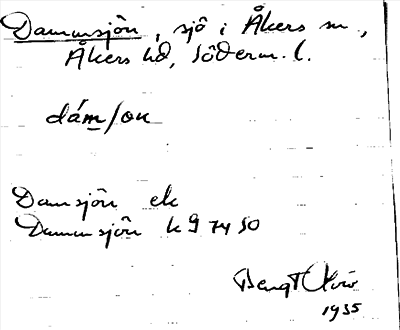 Dammsjön, sjö i Åkers sn,
Åkers hd, Söderm. l.
dámʃön
Damsjön ek
Dammsjön k 9 7450
Bengt
1935